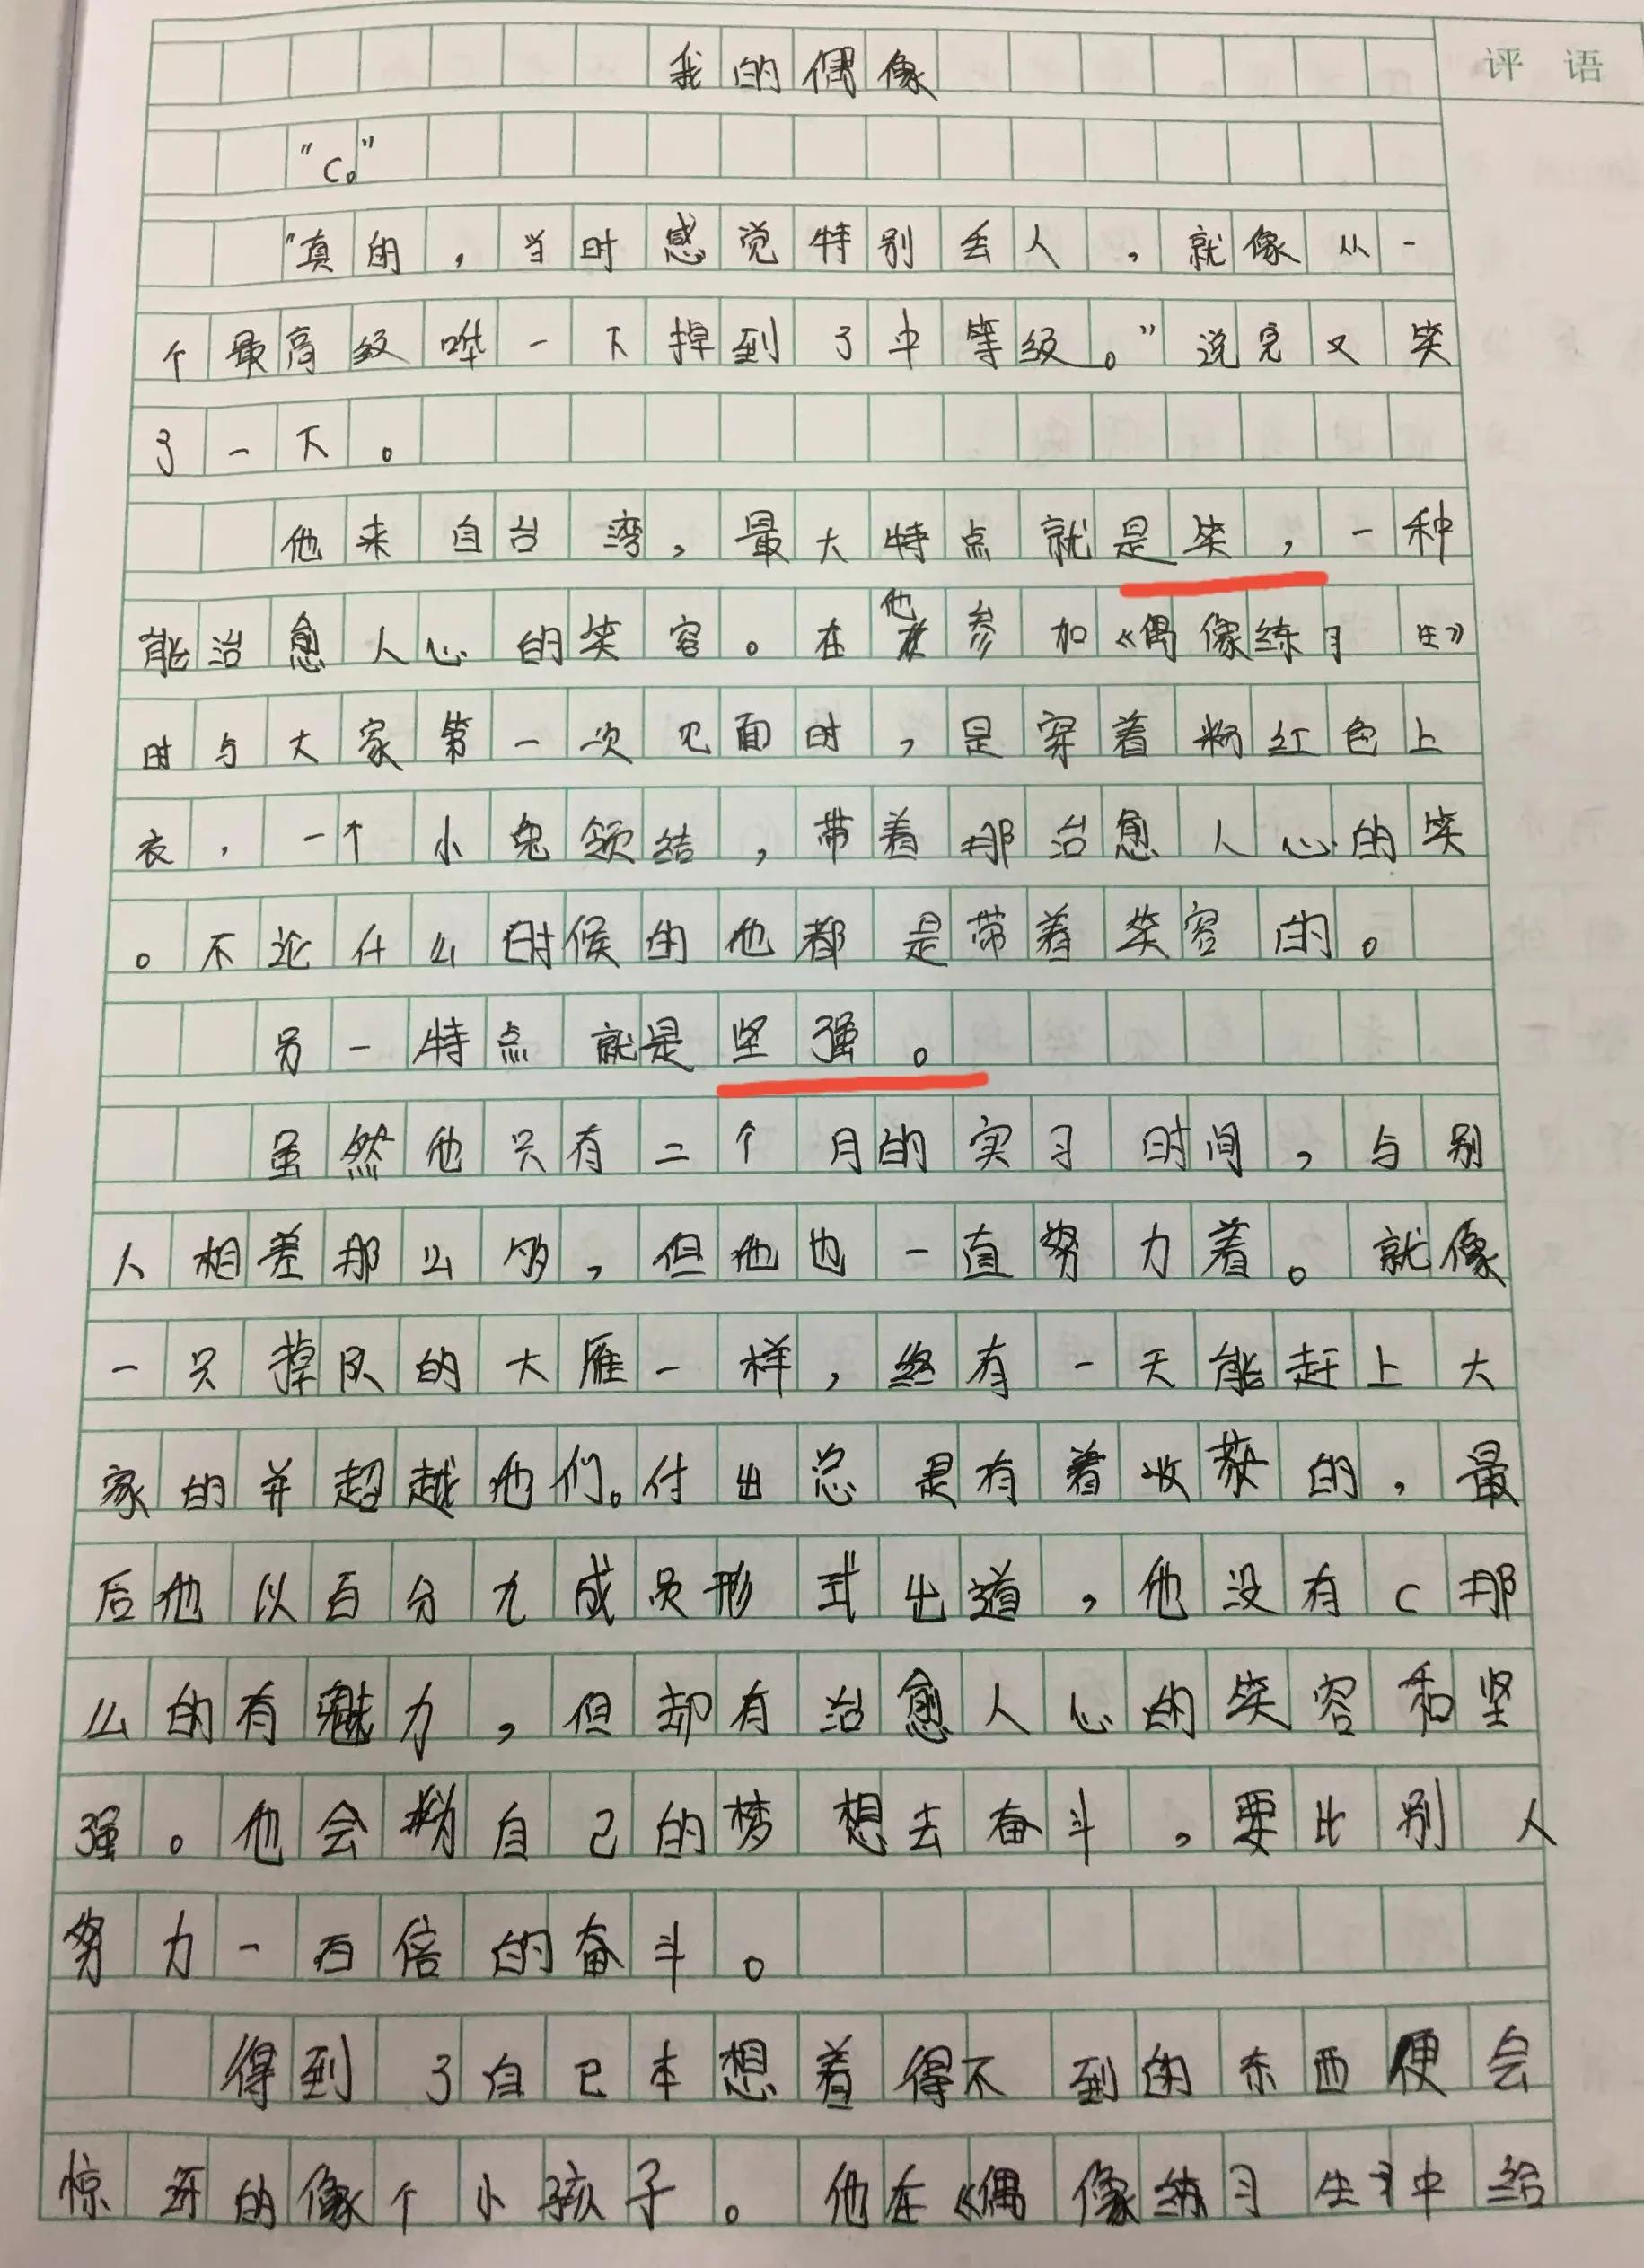 我的偶像
评语
"C。"
"真的，当时感觉特别丢人，就像从一
个最高级哗一下掉到了中等级。"说完又笑
了一下。
他来自台湾，最大特点就是笑，一种
能治愈人心的笑容。在他参加《偶像练习生》
时与大家第一次见面时，是穿着粉红色上
衣，一个小兔领结，带着那治愈人心的笑
。不论什么时候的他都是带着笑容的。
另一特点就是坚强。
虽然他只有二个月的实习时间，与别
人相差那么多，但他也一直努力着。就像
一只掉队的大雁一样，终有一天能赶上大
家的并超越他们。付出总是有着收获的，最
后他以百分九成员形式出道，他没有C那
么的有魅力，但却有治愈人心的笑容和坚
强。他会为自己的梦想去奋斗，要比别人
努力一百倍的奋斗。
得到了自己本想着得不到的东西便会
惊讶的像个小孩子。他在《偶像练习生》中给